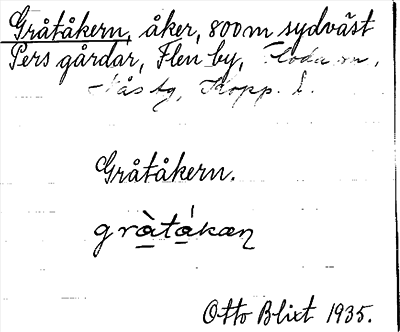 Gråtåkern, åker, 800 m sydväst
Pers gårdar, Flen by, Floda sn,
Nås tg, Kopp. l.
Gråtåkern.
gràtákaɳ
Otto Blixt 1935.